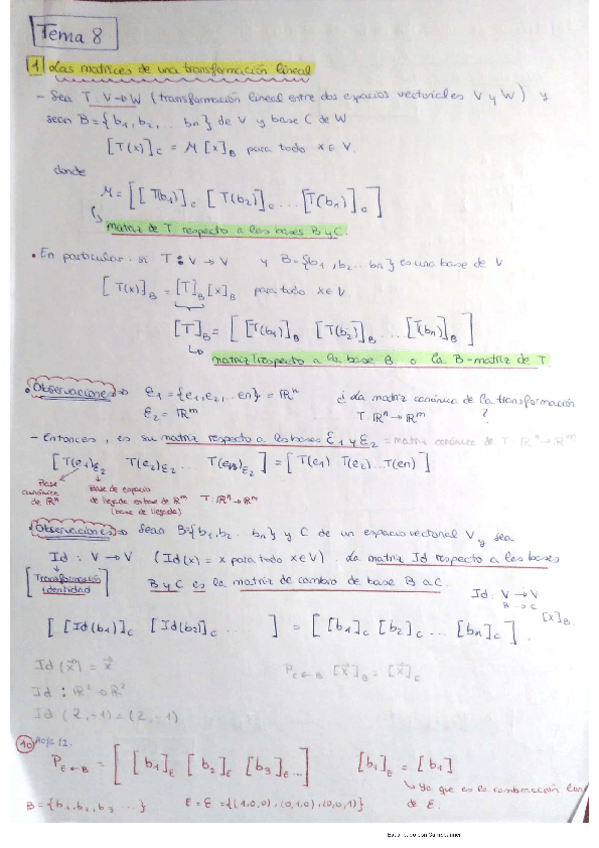 Tema 8
1 Las matrices de una transformación lineal
- Sea T V→W (transformación lineal entre dos espacios vectoriales V y W) y
sean B={b₁, b₂, ... bn} de V y base C de W
[T(x)]_C = M [x]_B para todo x∈V.
donde
M = [[T(b₁)]_C [T(b₂)]_C ... [T(bn)]_C]
matriz de T respecto a las bases B y C.
• En particular si T: V→V y B={b₁, b₂... bn} es una base de V
[T(x)]_B = [T]_B [x]_B para todo x∈V
[T]_B = [[T(b₁)]_B [T(b₂)]_B ... [T(bn)]_B]
matriz respecto a la base B o la B-matriz de T
• Observaciones ⇒ ε₁ = {e₁, e₂, ... en} = ℝⁿ ¿La matriz canónica de la transformación
ε₂ = ℝᵐ T ℝⁿ→ℝᵐ ?
- Entonces, es su matriz respecto a las bases ε₁ y ε₂ = matriz canónica de T ℝⁿ→ℝᵐ
[T(e₁)_ε₂ T(e₂)_ε₂ ... T(en)_ε₂] = [T(e₁) T(e₂)...T(en)]
Base canónica de ℝⁿ
Base de espacio de llegada base de ℝᵐ T:ℝⁿ→ℝᵐ
(base de llegada)
Observaciones ⇒ Sean B={b₁, b₂.. bn} y C de un espacio vectorial V y sea
Id : V→V (Id(x) = x para todo x∈V). La matriz Id respecto a las bases
[Transformación identidad] B y C es la matriz de cambio de base B a C.
Id: V→V
B→C
[x]_B
[[Id(b₁)]_C [Id(b₂)]_C ... ] = [[b₁]_C [b₂]_C ... [bn]_C].
Id(x⃗) = x⃗ P_C←B [x⃗]_B = [x⃗]_C
Id : ℝ²→ℝ²
Id (2,-1) = (2,-1)
10 Hoja 12.
P_ε←B = [[b₁]_ε [b₂]_ε [b₃]_ε ...] [b₁]_ε = [b₁]
Ya que es la combinación
B={b₁, b₂, b₃ ...} E = ε = {(1,0,0), (0,1,0), (0,0,1)} de ε.